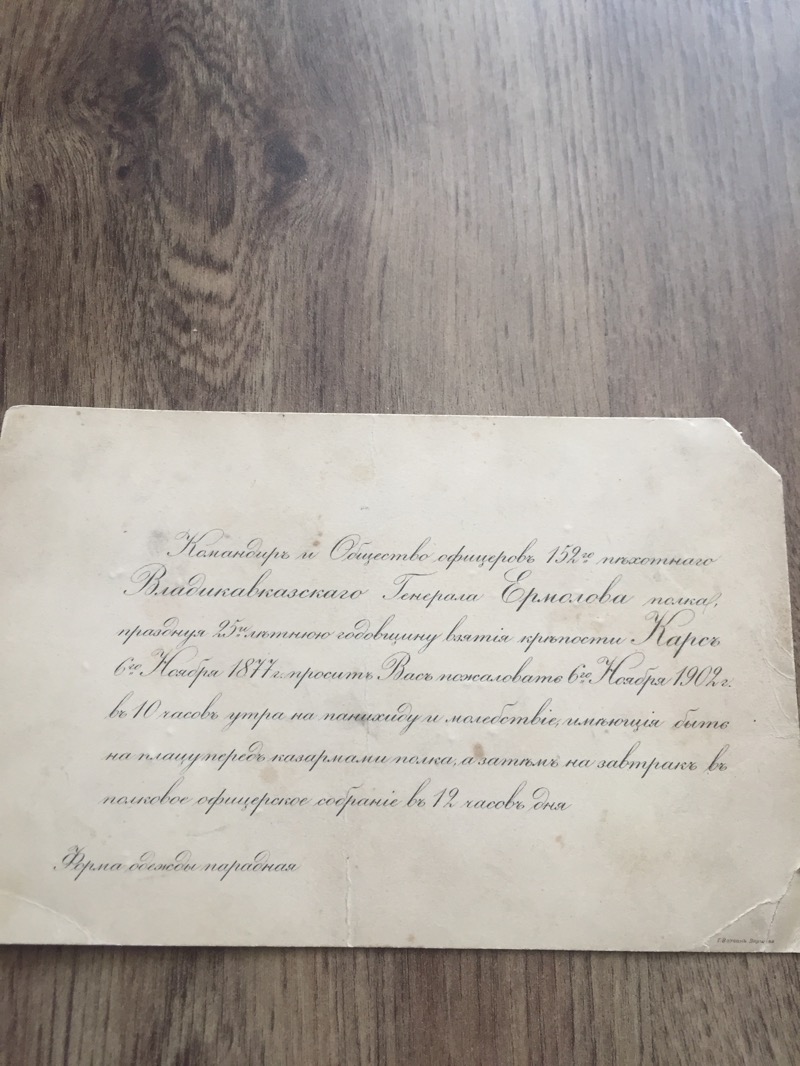 Командиръ и Общество офицеровъ 152го пѣхотнаго
Владикавказскаго Генерала Ермолова полка,
празднуя 25ти лѣтнюю годовщину взятія крѣпости Карсъ
6го Ноября 1877 г. просить Васъ пожаловать 6го Ноября 1902 г.
въ 10 часовъ утра на панихиду и молебствіе, имѣющія быть
на плацу передъ казармами полка, а затѣмъ на завтракъ въ
полковое офицерское собраніе въ 12 часовъ дня
Форма одежды парадная